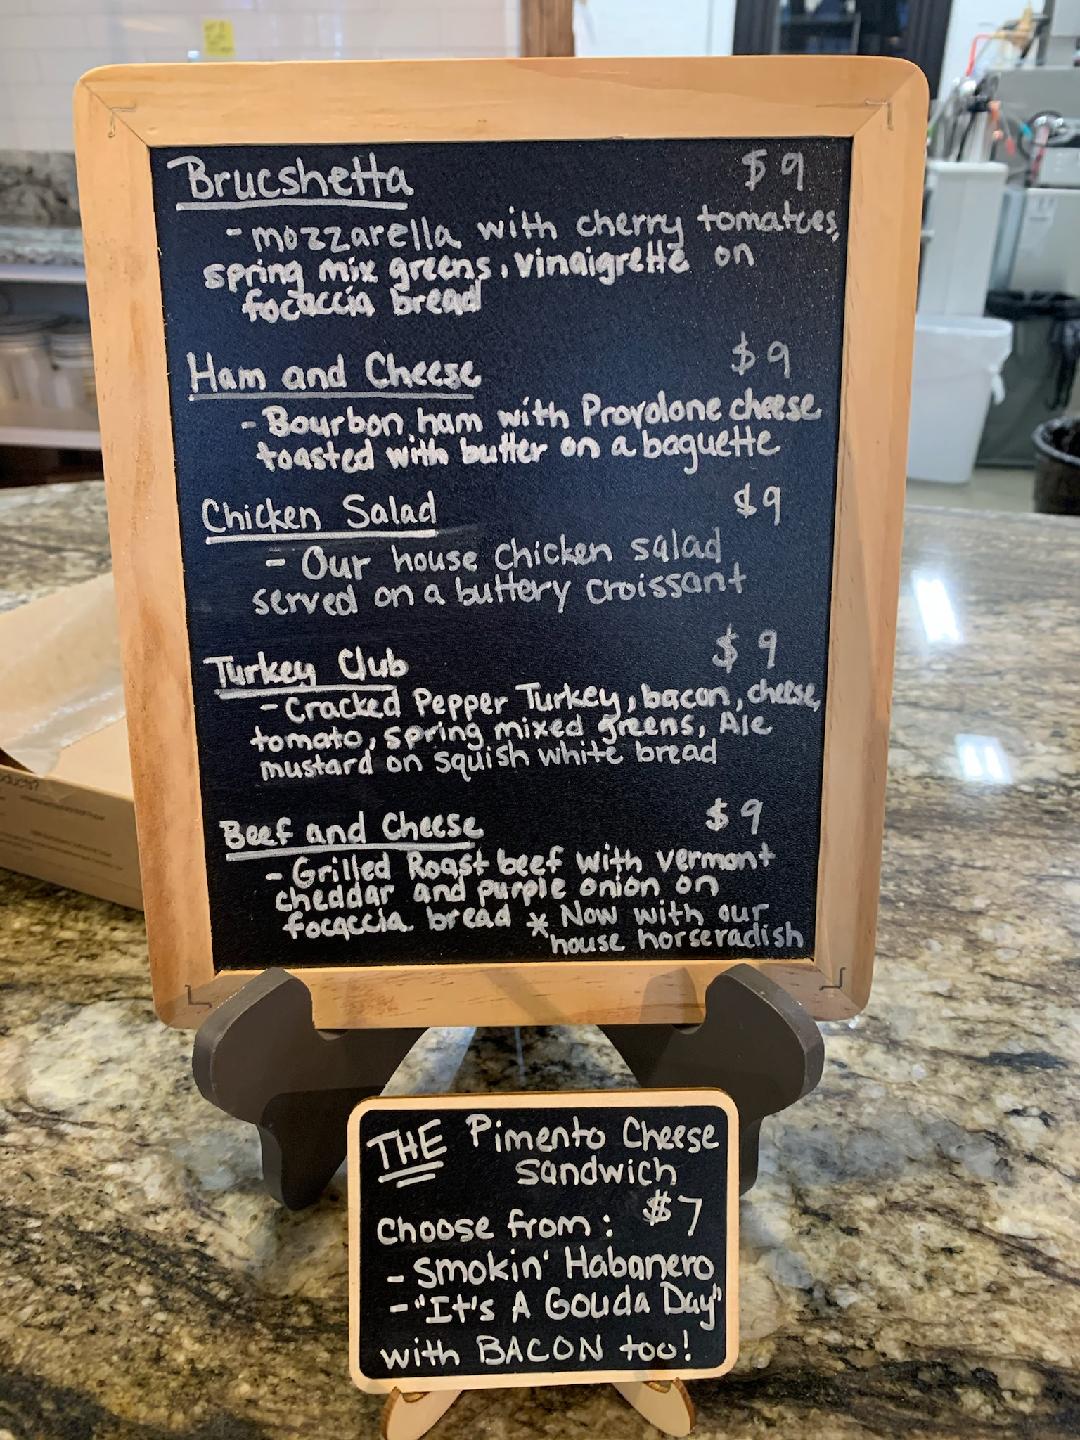 Brucshetta $9
- mozzarella with cherry tomatoes,
spring mix greens, vinaigrette on
focaccia bread
Ham and Cheese $9
- Bourbon ham with Provolone cheese
toasted with butter on a baguette
Chicken Salad $9
- Our house chicken salad
served on a buttery croissant
Turkey Club $9
- Cracked Pepper Turkey, bacon, cheese,
tomato, spring mixed greens, Ale
mustard on squish white bread
Beef and Cheese $9
- Grilled Roast beef with vermont
cheddar and purple onion on
focaccia bread * Now with our
house horseradish
THE Pimento Cheese
Sandwich
$7
Choose from:
- Smokin' Habanero
- "It's A Gouda Day"
with BACON too!